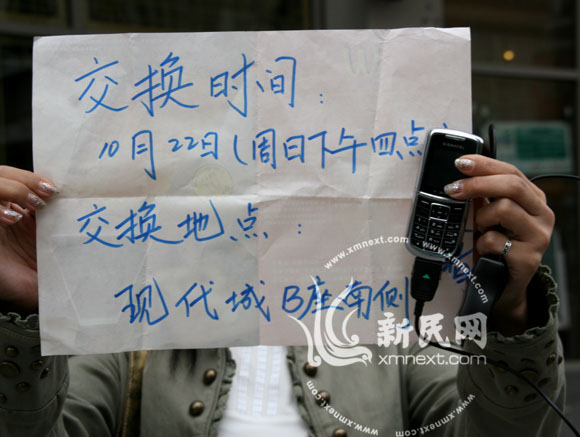 交换时间：
10月22日（周日下午四点
交换地点：
现代城B座南侧
SAMSUNG
www.xmnext.com
www.xmnext.com
新民网
xmnext.com
www.xmnext.com
www.xmnext.com